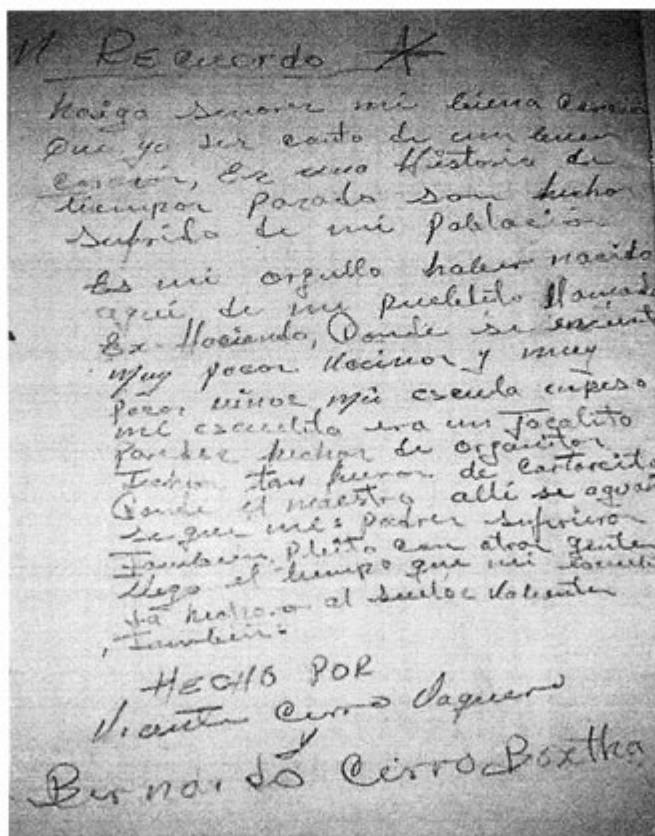 Recuerdo
haiga senores mi buena
Que yo ser canto de un buen
corazon, Es una Historia de
tiempos pasado son hechos
sufrido de mi Población
Es mi orgullo haber nacido
aquí de mi pueblito llamado
Ex Haciendo, Donde se
Muy pocos Vecinos y muy
pocos niños mi escuela
mi escuelita era un Jacalito
Paredes hechos de organitos
Techos tan de
Donde el maestro allí se
segun mis padres sufrieron
Tambien Pleito con otros gentes
llego el tiempo que mi
al suelos Valientes
Tambien.
HECHO POR
Vicente Cerro Vaquero
y
Bernardo Cerro Boxtha